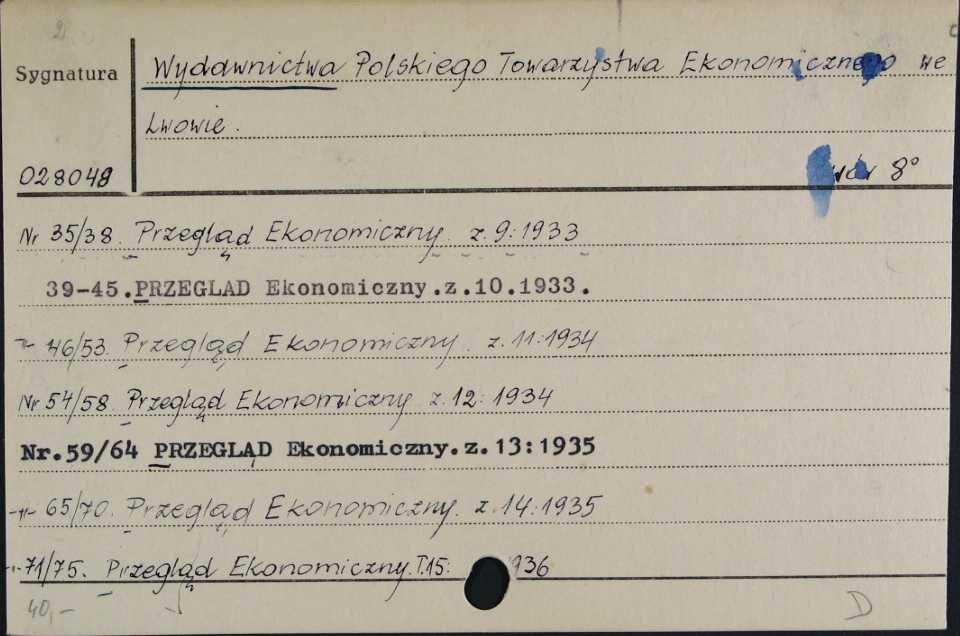 Sygnatura
Wydawnictwa Polskiego Towarzystwa Ekonomicznego we
Lwowie.
028048
8°
Nr 35/38. Przegląd Ekonomiczny. z. 9: 1933
39-45. PRZEGLAD Ekonomiczny.z.10.1933.
-"- 46/53. Przegląd Ekonomiczny. z. 11: 1934
Nr 54/58. Przegląd Ekonomiczny z. 12: 1934
Nr.59/64 PRZEGLĄD Ekonomiczny.z.13:1935
-"- 65/70. Przegląd Ekonomiczny. z. 14: 1935
-"- 71/75. Przegląd Ekonomiczny. T.15: 936
40,-
D